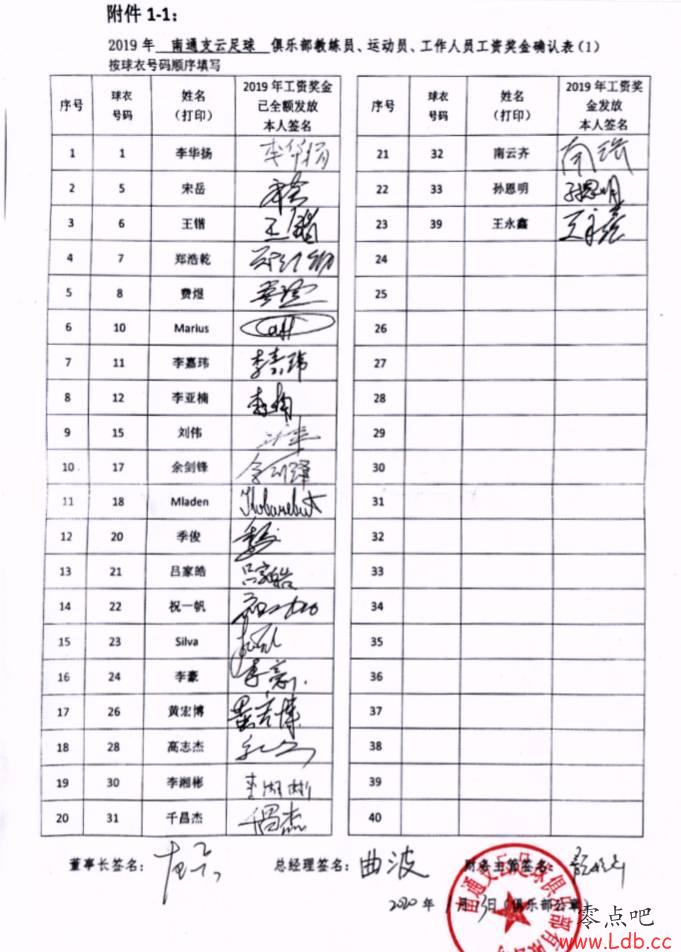 附件 1-1：
2019 年 南通支云足球 俱乐部教练员、运动员、工作人员工资奖金确认表（1）
按球衣号码顺序填写
序号 球衣号码 姓名（打印） 2019 年工资奖金已全额发放本人签名
1 1 李华扬 李华扬
2 5 宋岳
3 6 王锴 王锴
4 7 郑浩乾
5 8 费煜 费煜
6 10 Marius
7 11 李嘉玮 李嘉玮
8 12 李亚楠
9 15 刘伟
10 17 余剑锋
11 18 Mladen
12 20 季俊
13 21 吕家皓 吕家皓
14 22 祝一帆
15 23 Silva
16 24 李豪
17 26 黄宏博
18 28 高志杰
19 30 李湘彬 李湘彬
20 31 千昌杰
序号 球衣号码 姓名（打印） 2019 年工资奖金发放本人签名
21 32 南云齐
22 33 孙恩明 孙恩明
23 39 王永鑫 王永鑫
24
25
26
27
28
29
30
31
32
33
34
35
36
37
38
39
40
董事长签名： 总经理签名： 曲波 财务主管签名：
2020 年 月 13日 俱乐部公章
南通支云足球俱乐部有限
零点吧
www.Ldb.cc